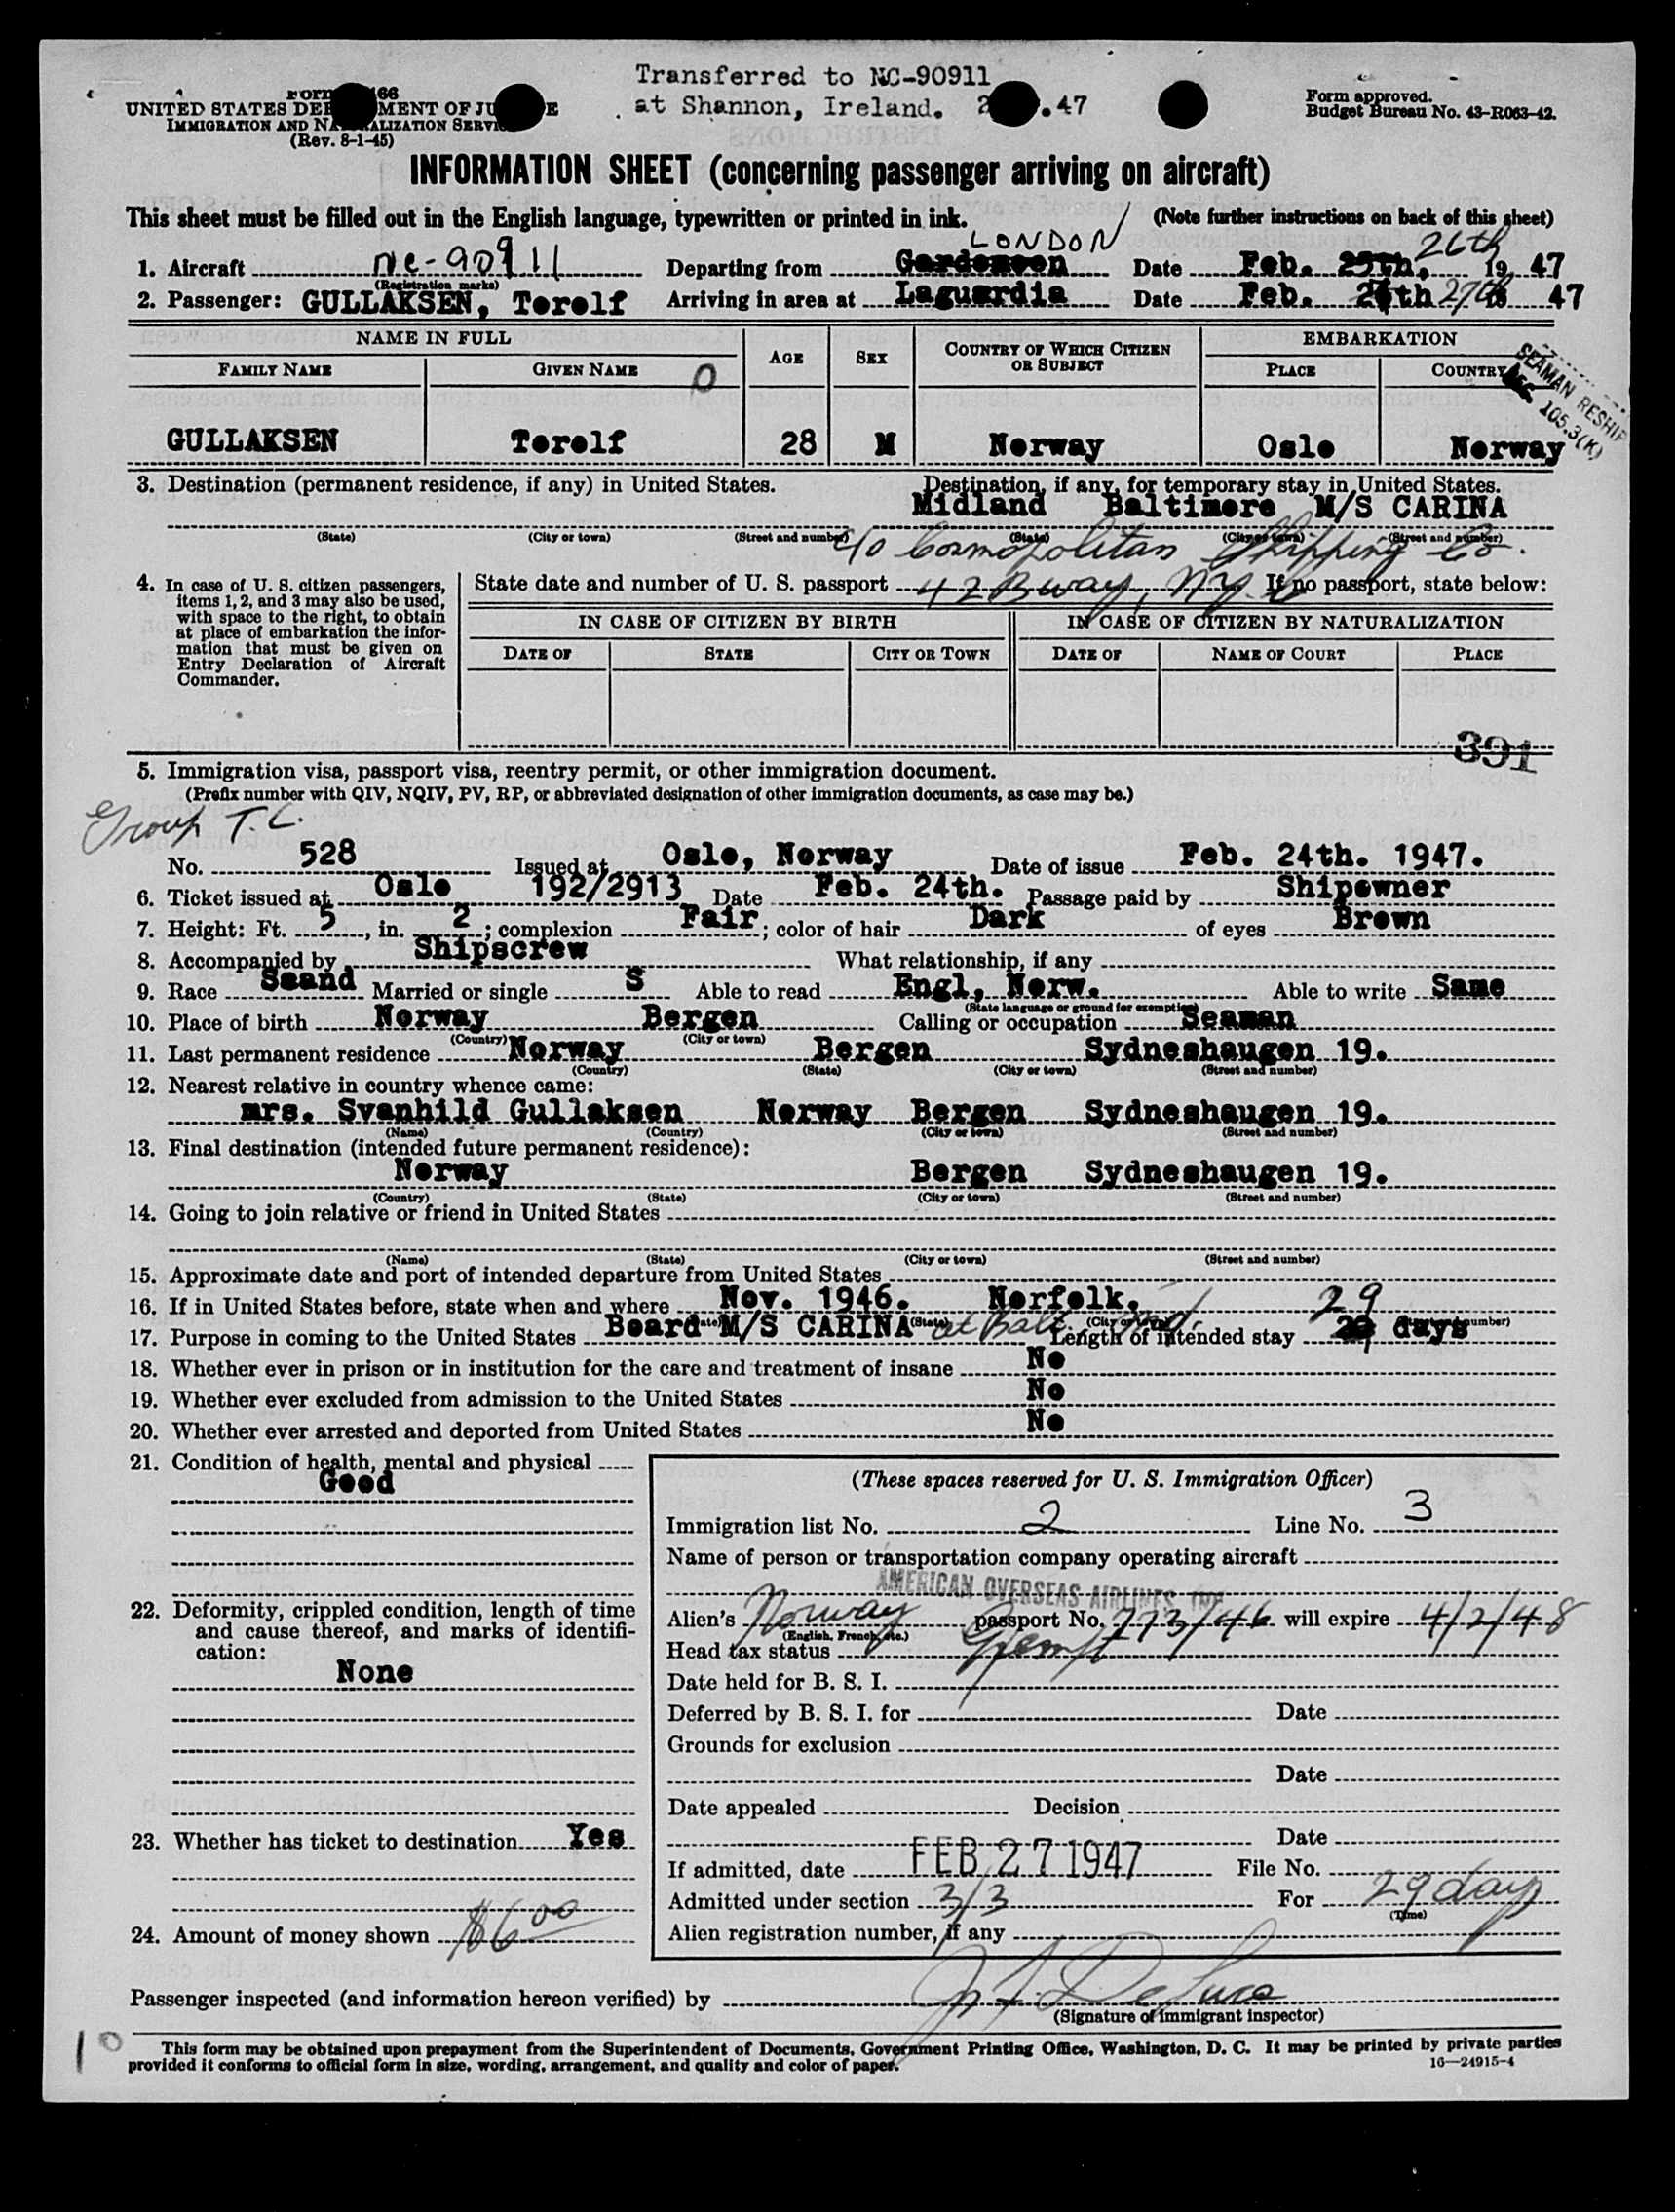 Transferred to NC-90911
at Shannon, Ireland. 2 .47
Form 66
UNITED STATES DEPARTMENT OF JUSTICE
IMMIGRATION AND NATURALIZATION SERVICE
(Rev. 8-1-45)
Form approved.
Budget Bureau No. 43-R063-42.
INFORMATION SHEET (concerning passenger arriving on aircraft)
This sheet must be filled out in the English language, typewritten or printed in ink. (Note further instructions on back of this sheet)
LONDON 26th
1. Aircraft NC-90911 Departing from Date Feb. 25th, 19 47
(Registration marks)
2. Passenger: GULLAKSEN, Torolf Arriving in area at Laguardia Date Feb. 26th 27th 47
NAME IN FULL AGE SEX COUNTRY OF WHICH CITIZEN OR SUBJECT EMBARKATION
FAMILY NAME GIVEN NAME PLACE COUNTRY
0
SEAMAN RESHIP
SEC 105.3(K)
GULLAKSEN Torolf 28 M Norway Oslo Norway
3. Destination (permanent residence, if any) in United States. Destination, if any, for temporary stay in United States.
Midland Baltimore M/S CARINA
(State) (City or town) (Street and number) (State) (City or town) (Street and number)
c/o Cosmopolitan Shipping Co.
4. In case of U. S. citizen passengers, items 1, 2, and 3 may also be used, with space to the right, to obtain at place of embarkation the information that must be given on Entry Declaration of Aircraft Commander.
State date and number of U. S. passport 42 Bway, NY If no passport, state below:
IN CASE OF CITIZEN BY BIRTH IN CASE OF CITIZEN BY NATURALIZATION
DATE OF STATE CITY OR TOWN DATE OF NAME OF COURT PLACE
391
5. Immigration visa, passport visa, reentry permit, or other immigration document.
(Prefix number with QIV, NQIV, PV, RP, or abbreviated designation of other immigration documents, as case may be.)
Group T.C.
No. 528 Issued at Oslo, Norway Date of issue Feb. 24th. 1947.
6. Ticket issued at Oslo 192/2913 Date Feb. 24th. Passage paid by Shipowner
7. Height: Ft. 5, in. 2; complexion Fair; color of hair Dark of eyes Brown
8. Accompanied by Shipscrew What relationship, if any
9. Race Scand Married or single S Able to read Engl, Norw. Able to write Same
(State language or ground for exemption)
10. Place of birth Norway Bergen Calling or occupation Seaman
(Country) (City or town)
11. Last permanent residence Norway Bergen Sydneshaugen 19.
(Country) (State) (City or town) (Street and number)
12. Nearest relative in country whence came:
mrs. Svanhild Gullaksen Norway Bergen Sydneshaugen 19.
(Name) (Country) (City or town) (Street and number)
13. Final destination (intended future permanent residence):
Norway Bergen Sydneshaugen 19.
(Country) (State) (City or town) (Street and number)
14. Going to join relative or friend in United States
(Name) (State) (City or town) (Street and number)
15. Approximate date and port of intended departure from United States
16. If in United States before, state when and where Nov. 1946. Norfolk,
29
17. Purpose in coming to the United States Board M/S CARINA at Balt. Md. Length of intended stay days
18. Whether ever in prison or in institution for the care and treatment of insane No
19. Whether ever excluded from admission to the United States No
20. Whether ever arrested and deported from United States No
21. Condition of health, mental and physical
Good
22. Deformity, crippled condition, length of time and cause thereof, and marks of identification:
None
23. Whether has ticket to destination Yes
24. Amount of money shown $6.00
(These spaces reserved for U. S. Immigration Officer)
Immigration list No. 2 Line No. 3
Name of person or transportation company operating aircraft
AMERICAN OVERSEAS AIRLINES, INC
Alien's Norway passport No. 773/46 will expire 4/2/48
(English, French, etc.)
Head tax status Exempt
Date held for B. S. I.
Deferred by B. S. I. for Date
Grounds for exclusion
Date
Date appealed Decision
Date
If admitted, date FEB 27 1947 File No.
Admitted under section 3/3 For 29 days
(Time)
Alien registration number, if any
Passenger inspected (and information hereon verified) by
(Signature of immigrant inspector)
10
This form may be obtained upon prepayment from the Superintendent of Documents, Government Printing Office, Washington, D. C. It may be printed by private parties
provided it conforms to official form in size, wording, arrangement, and quality and color of paper.
16—24915-4